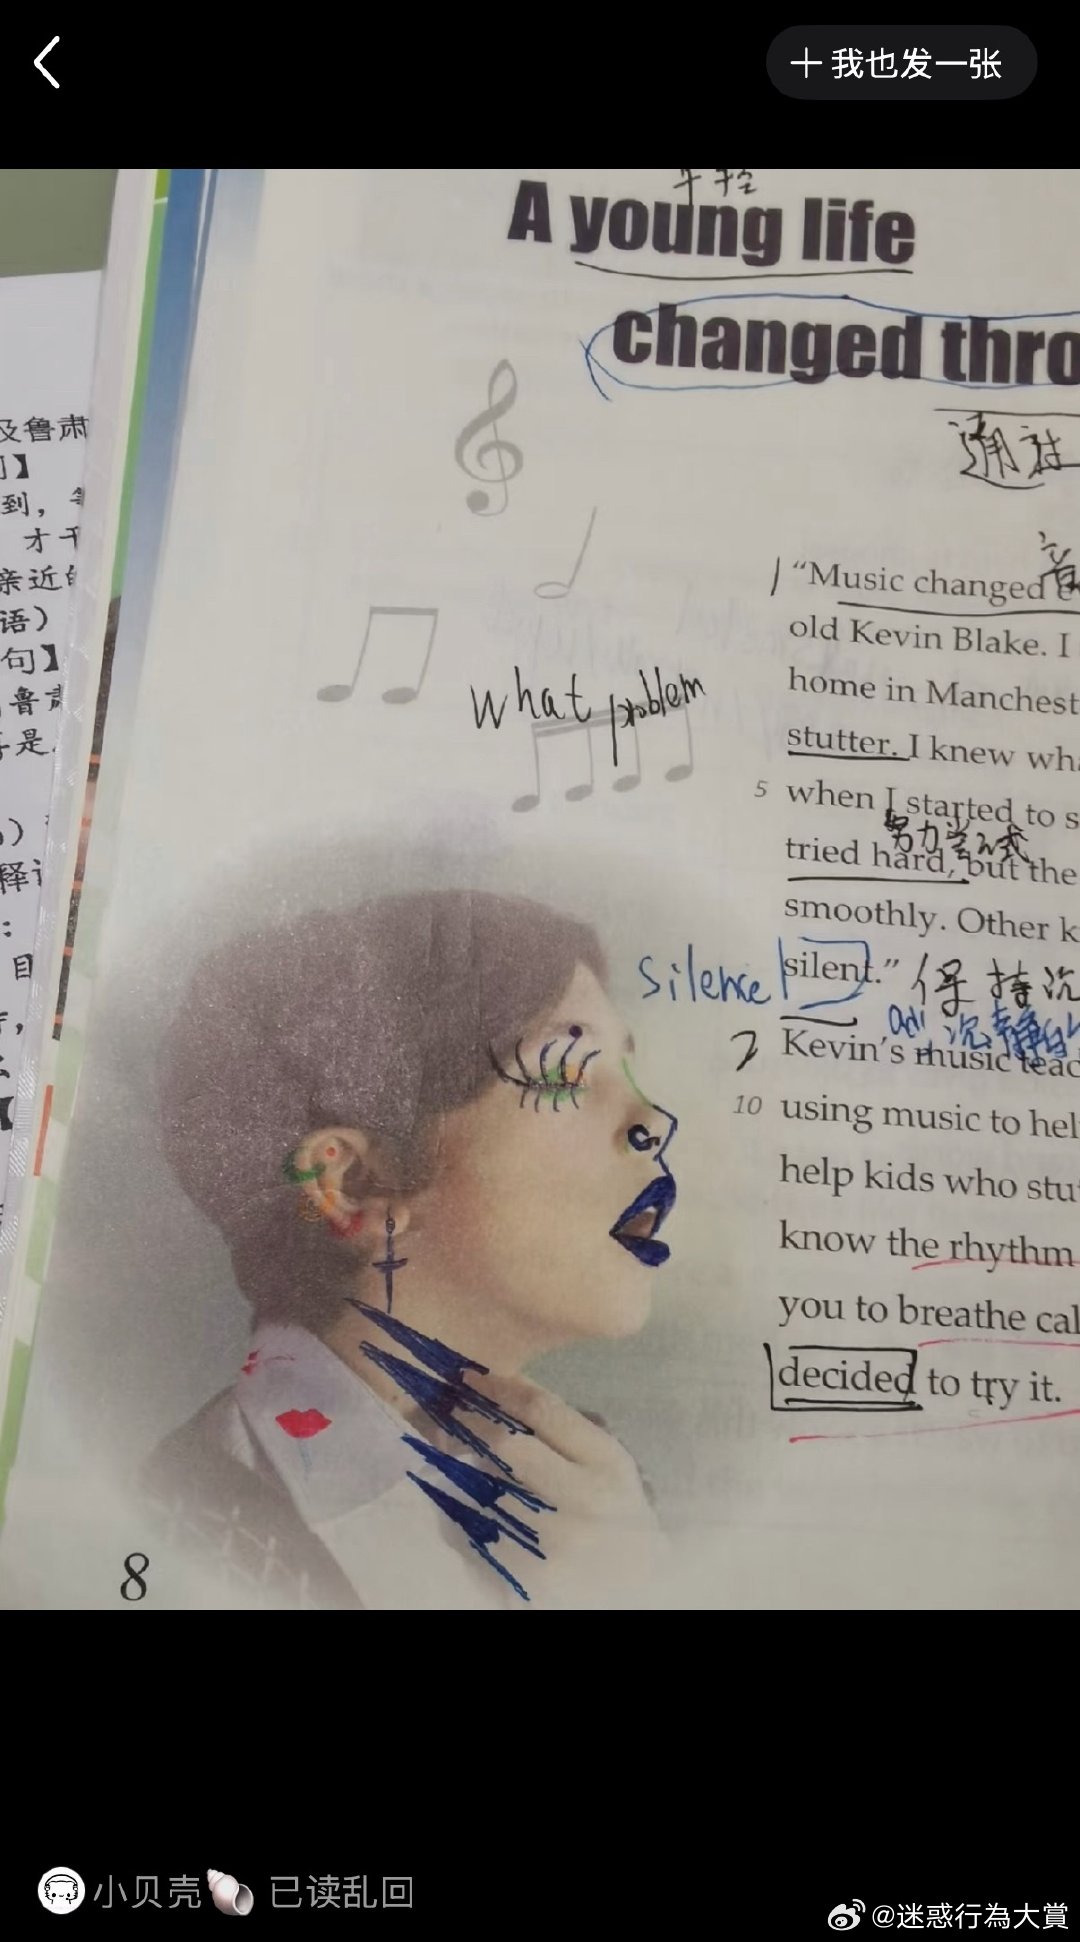 我也发一张
年轻
A young life
changed thro
通过
及鲁肃
】
到，
才干
亲近
语）
句】
鲁肃
是
释
：
目
音
1 “Music changed e
old Kevin Blake. I
home in Manchest
what problem
stutter. I knew wh
5 when I started to s
努力尝试
tried hard, but the
smoothly. Other k
silence silent.” 保持沉
adj 沉静的
2 Kevin's music teac
10 using music to hel
help kids who stu
know the rhythm
you to breathe cal
decided to try it.
8
小贝壳 已读乱回
@迷惑行為大賞